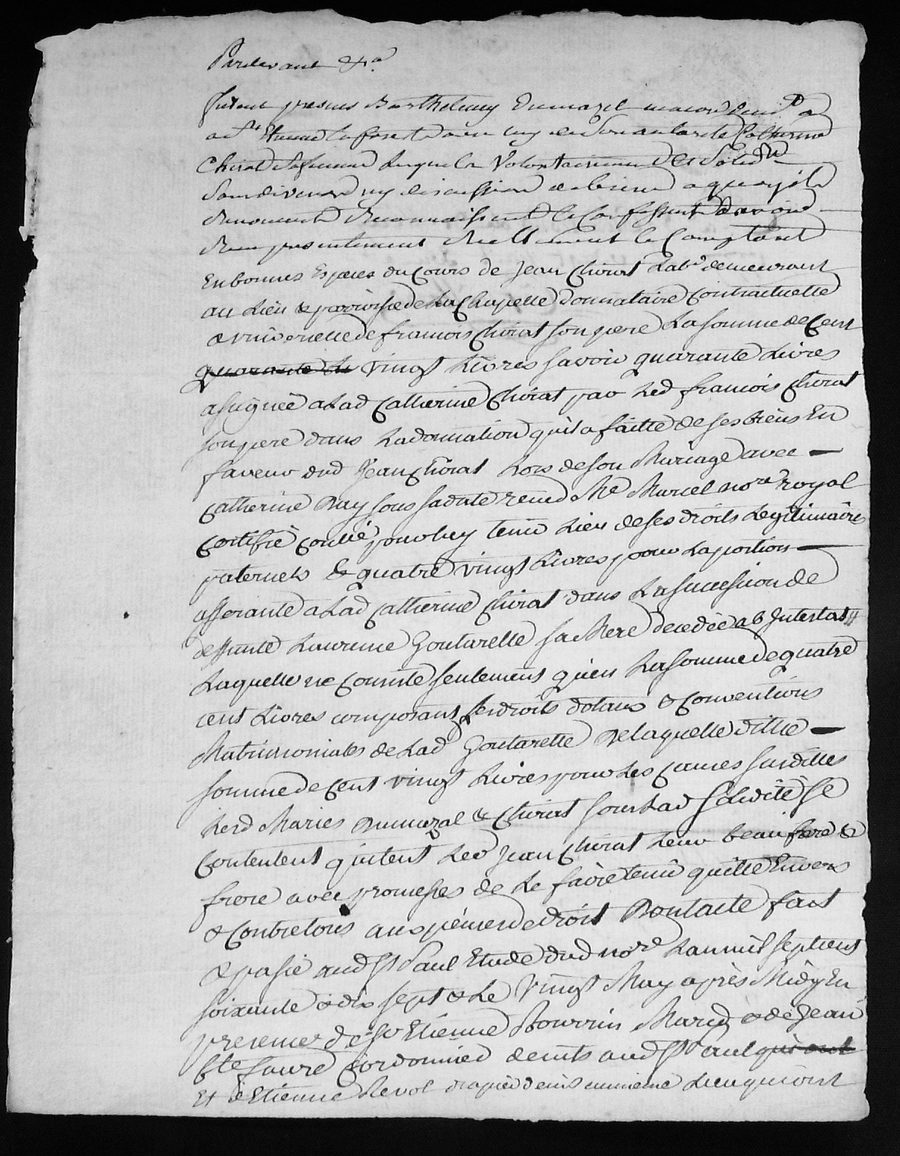 Pardevant &ra
furent presens Barthelemy Dumazel macon
a St Etienne la forest Catherine
Chirat sa femme lesquels Volontairement Et Solid.nt
Sans division ny discussion de biens a quoy ils
Renoncent Reconnaissent & Confessent davoir
Reçu presentement Reellement & Comptant
En bonnes Especes du Cours de Jean Chirat Lab.r demeurant
au Lieu & parroisse de La Chapelle Donnataire Contractuelle
& universelle de francois Chirat son pere La somme de Cent
quarante Liv vingt Livres savoir quarante Livres
asignée a Lad Catherine Chirat par Led francois Chirat
son pere dans La donnation quil a faitte de ses biens En
faveur dud Jean Chirat Lors de son Mariage avec
Catherine Ray sous sa datte reçu Me Marcel nore Royal
Certifié Controlé pour luy tenir Lieu de ses droits Legitimaires
paternels & quatre vingt Livres pour La portion
afferante a Lad Catherine Chirat dans La succession de
deffunte Laurence Goutarelle sa Mere decedée ab Intestat
Laquelle ne Consiste seulement quen La somme de quatre
cent Livres composant ses droits dotaux & Conventions
Matrimoniales de Lad Goutarette De laquelle ditte
somme de Cent vingt Livres pour Les causes susdittes
Lesd Maries Dumazel & Chirat sous Lad solidité se
Contentent quitent Led Jean Chirat Leur beau frere &
frere avec promesses de Le faire tenir quitte Envers
& Contre tous aux peines de droit Dont acte fait
& passé aud St Paul Etude dud nore Lan mil sept cent
soixante & dix sept & Le vingt May après Midy En
presence de Sr Etienne Bourrin March & de Jean
Bte faure Cordonnier demts aud St Paul qui ont
Et de Etienne Revol drapier demt Lieu qui ont